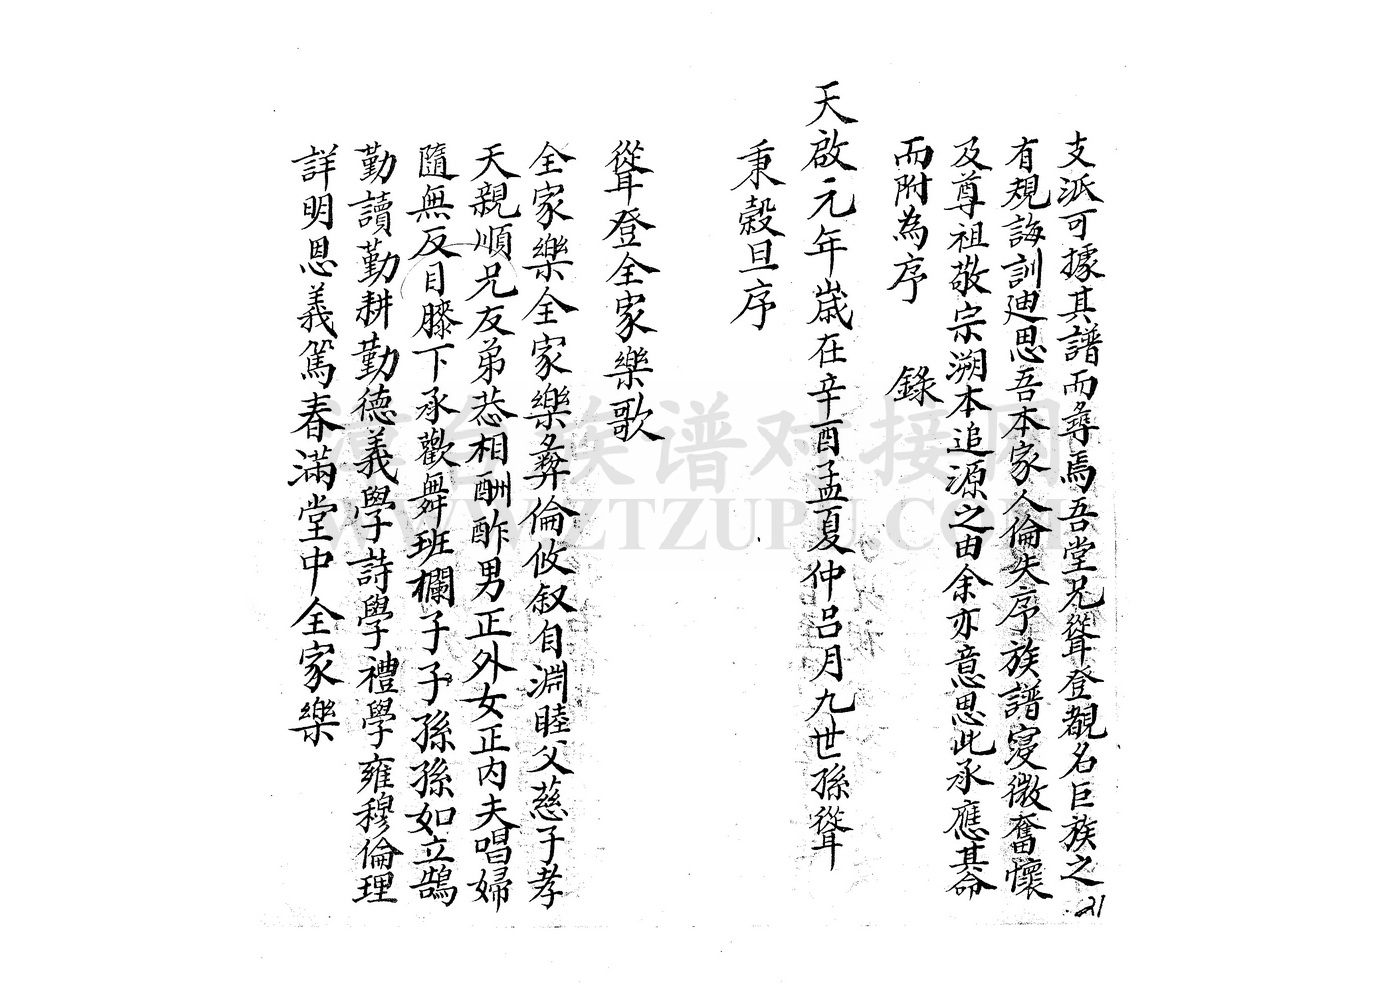 支派可據其譜而尋焉吾堂兄聳登覩名巨族之
有規誨訓廸思吾本家人倫失序族譜寖微奮懷
及尊祖敬宗溯本追源之由余亦意思此承應其命
而附為序　　錄
天啟元年歲在辛酉孟夏仲呂月九世孫聳
秉榖旦序
聳登全家樂歌
全家樂全家樂彝倫攸叙自淵睦父慈子孝
天親順兄友弟恭相酬酢男正外女正內夫唱婦
隨無反目膝下承歡舞班欄子子孫孫如立鵠
勤讀勤耕勤德義學詩學禮學雍穆倫理
詳明恩義篤春滿堂中全家樂
21
漳台族谱对接网
WWW.ZTZUPU.COM